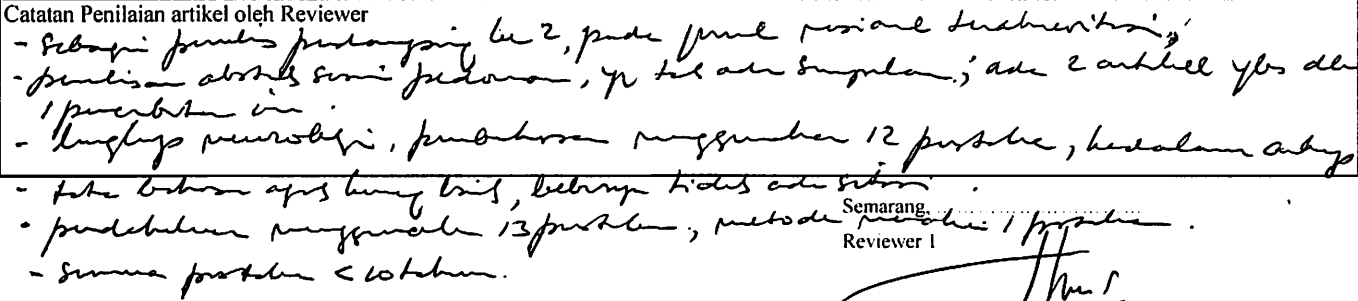 Catatan Penilaian artikel oleh Reviewer
- Sebagai penulis pendamping ke 2, pada jurnal nasional terakreditasi;
- penulisan abstrak sesuai pedoman, yg tak ada simpulan; ada 2 artikel ybs dlm
1 penerbitan ini.
- lingkup neurologi, pembahasan menggunakan 12 pustaka, kedalaman cukup
- tata bahasa agak kurang baik, beberapa tidak ada sitasi.
- pendahuluan menggunakan 13 pustaka, metode memakai 1 pustaka.
Semarang,
Reviewer 1
- Semua pustaka < 10 tahun.